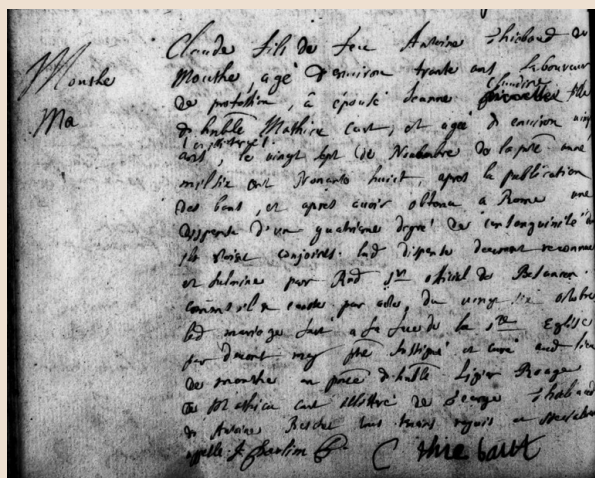 Mouthe
Ma
Claude fils de feu Antoine Thiebaud de
Mouthe, agé d'environ trante ans laboureur
de profession, à épousé Jeanne Claudine fille
d'hble Mathieu Cart, et agée d'environ vingt
ans, le vingt sept de Novembre de la pnte année
mil six cent Nonante huict, apres la publication
des bans, et apres avoir obtenu a Rome une
dispense d'un quatrieme degré de consanguinité
conjoincts. lad. dispense deument reconnue
et fulminé par Rnd Sr official de Besancon
comme il en conste par acte du vingt octobre
led mariage fait a la face de la Ste Eglise
par devant moy pbre soussigné et curé aud lieu
de mouthe en pnce d'hble Ligier Rouge
de Mathieu Cart de George Thiebaud
et Antoine tous temoins requis et
appellé. J. C Thiebaut